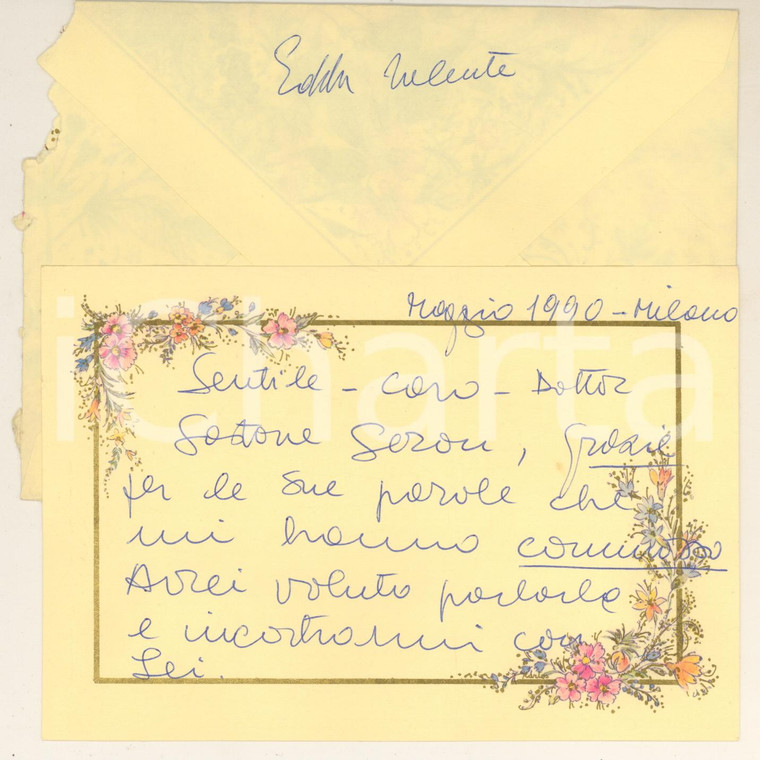 Edda Valente
Maggio 1990 - Milano
Gentile - caro - Dottor
Gastone Geron, Grazie
per le Sue parole che
mi hanno commosso
Avrei voluto parlarle
e incontrarmi con
Lei.
iCharta